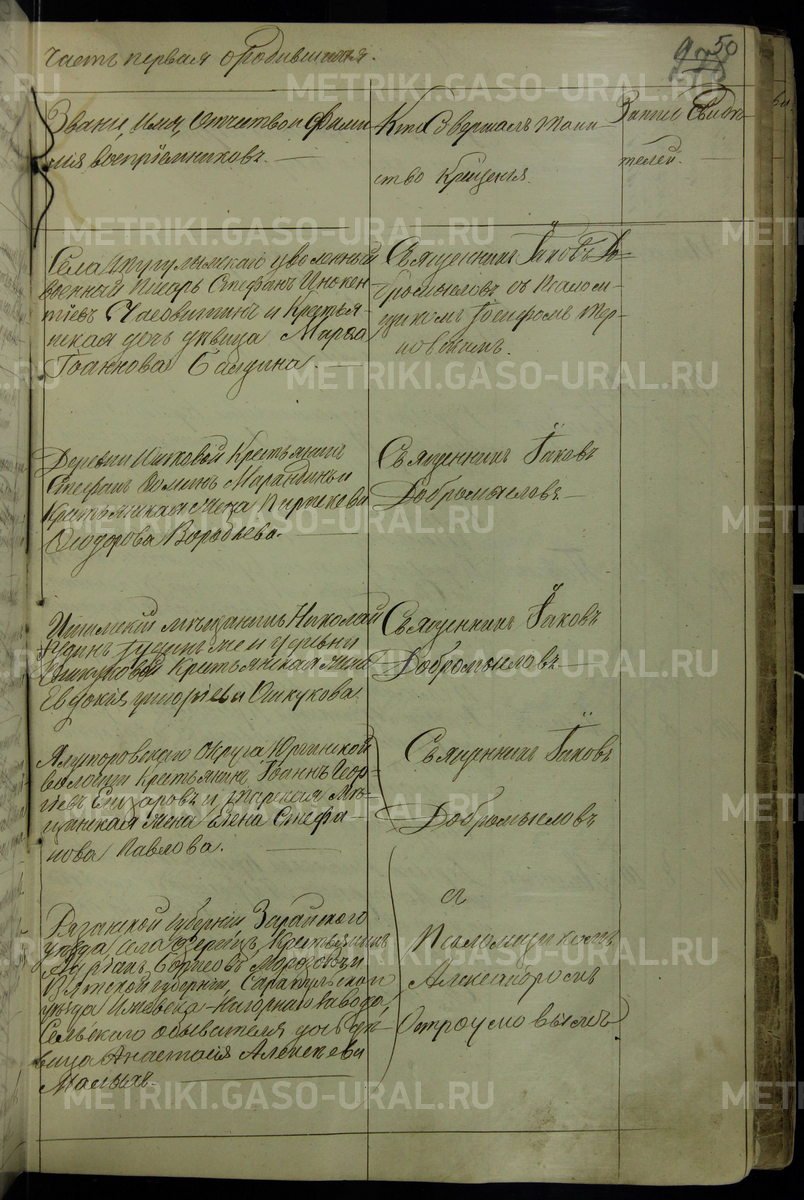 Часть первая о родившихся.
50
Званіе, Имя, Отчество и Фами-
лія воспріемниковъ.
Кто Совершалъ таин-
ство Крещенія.
Запись Свидѣ-
телей.
Села уволенный
военный Писарь Стефанъ Инокен-
тіевъ Часовитинъ и Крестья-
нская дочь дѣвица Марѳа
Іоаннова
Священникъ Іаковъ До-
бромысловъ съ Псалом-
щикомъ Іосифомъ Тер-
новскимъ.
Деревни Крестьянинъ
Стефанъ Ѳоминъ Марандинъ и
Крестьянская жена
Ѳеодорова Воробьева.
Священникъ Іаковъ
Добромысловъ
Ишимскій мѣщанинъ Николай
и деревни
Крестьянская жена
Евдокія Григорьева Ошкукова.
Священникъ Іаковъ
Добромысловъ
Ялуторовскаго Округа Юргинской
волости Крестьянинъ Іоаннъ Геор-
гіевъ и Тарская Мѣ-
щанская жена Елена Стефа-
нова Павлова.
Священникъ Іаковъ
Добромысловъ
Рязанской Губерніи Зарайскаго
уѣзда села Крестьянинъ
Борисовъ Морозовъ и
Вятской губерніи, Сарапульскаго
уѣзда Ижевско-Нагорнаго завода,
Сельскаго обывателя дочь дѣ-
вица Анастасія Алексѣева
Малыхъ.
съ
Псаломщикомъ
Александромъ
Остроумовымъ
METRIKI.GASO-URAL.RU